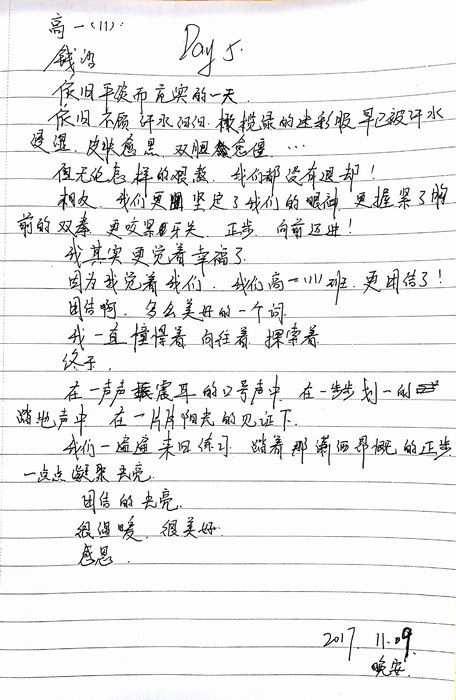 高一(11).
钱
Day 5.
依旧平淡而充实的一天.
依旧不顾汗水汩汩.橄榄绿的迷彩服早已被汗水
浸湿.皮肤愈黑.双腿愈僵…
但无论怎样的艰熬.我们都没有退却!
相反.我们更坚定了我们的眼神.更握紧了胸
前的双拳.更咬紧牙关.正步.向前迈进!
我其实更觉着幸福了.
因为我觉着我们.我们高一(11)班.更团结了!
团结啊.多么美好的一个词.
我一直憧憬着.向往着.探索着.
终于.
在一声声震耳的口号声中.在一步步划一的
踏地声中.在一片片阳光的见证下.
我们一遍遍来回练习.踏着那潇洒气概的正步.
一点点凝聚光亮.
团结的光亮.
很温暖.很美好.
感恩.
2017. 11. 09.
晚安.